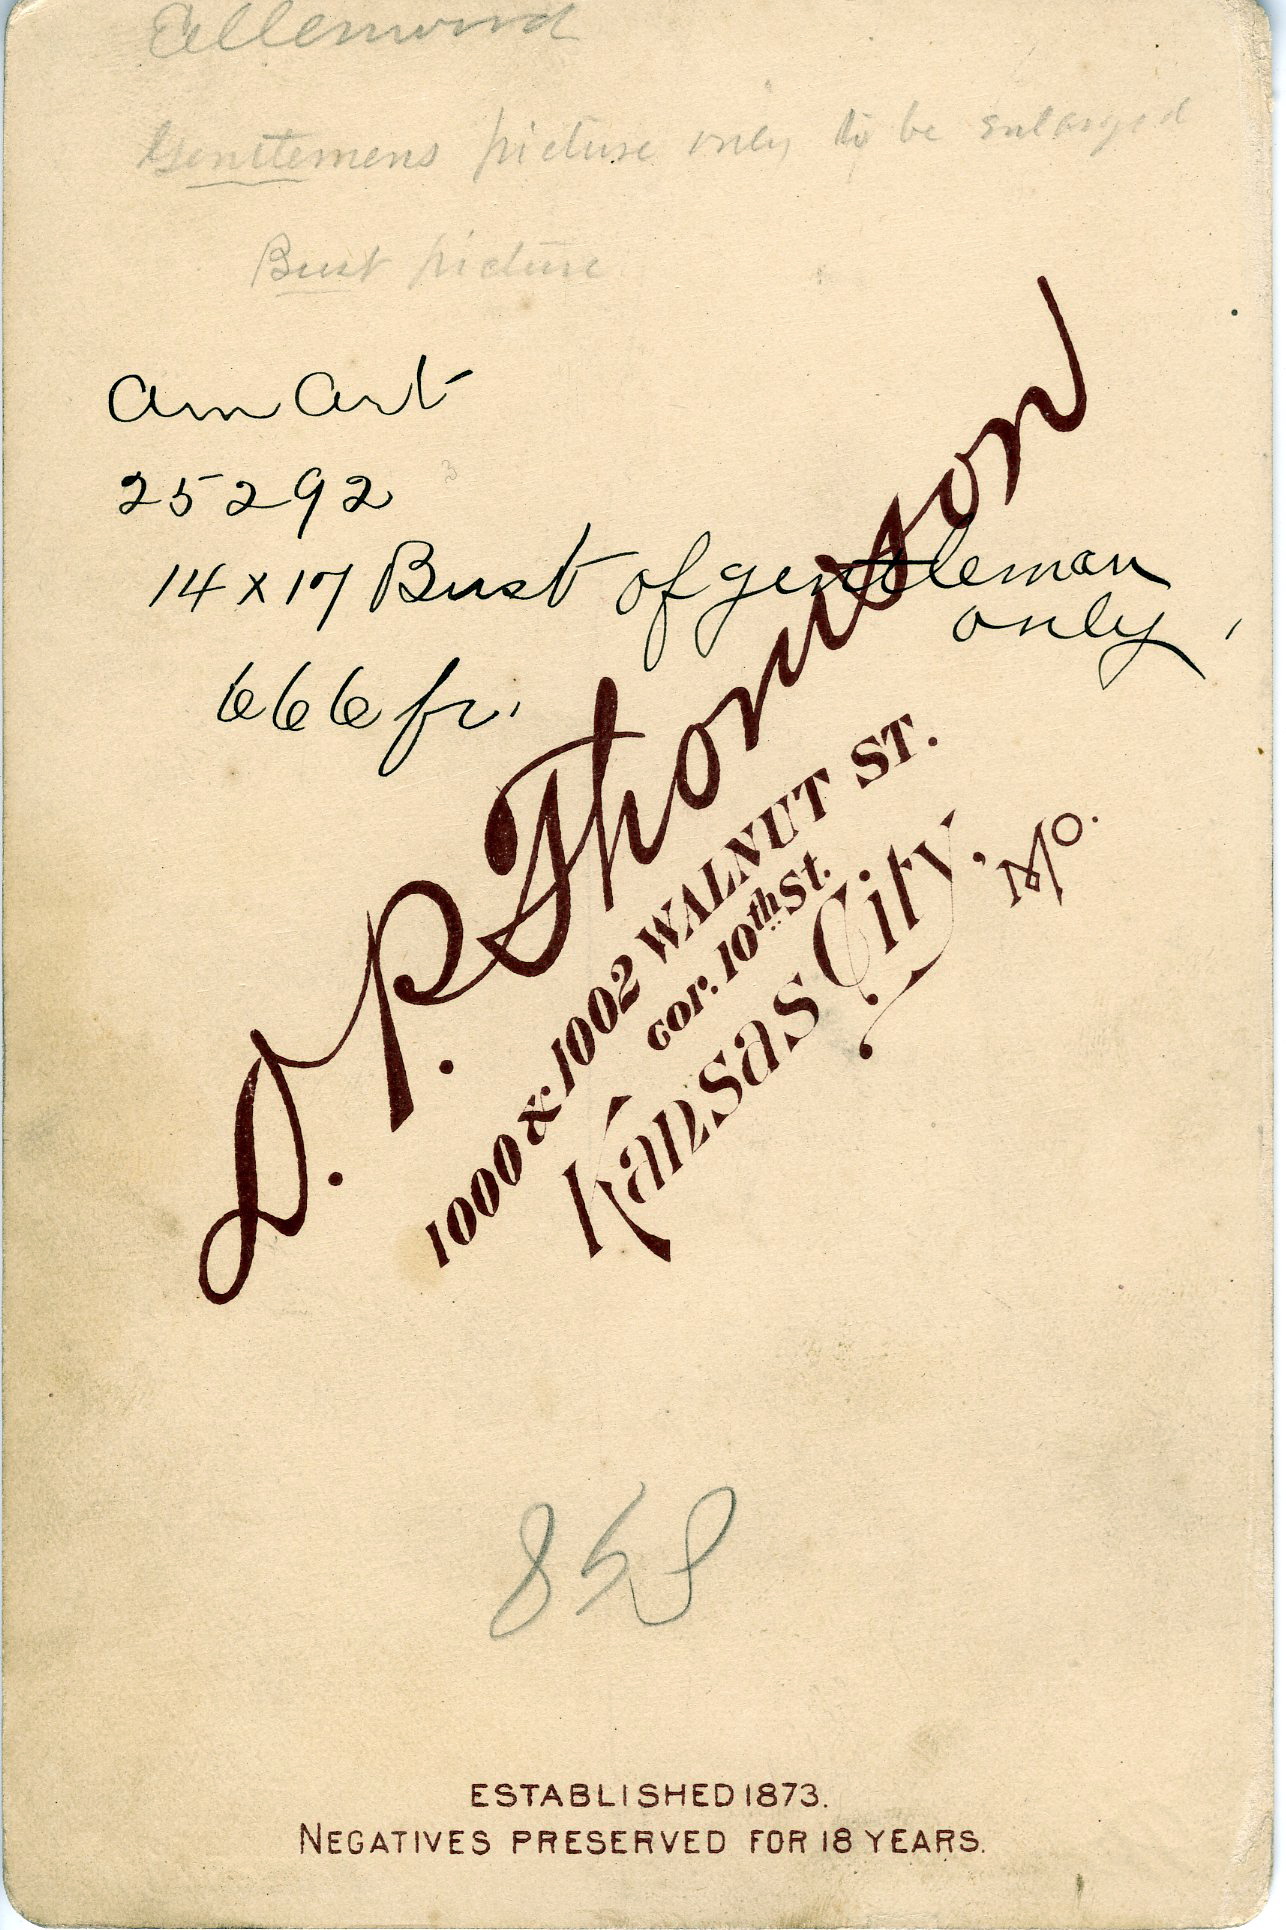 Ellenwood
Gentlemens picture only to be enlarged
Bust picture
Am Art
25292
14 x 17 Bust of gentleman
only,
666 fr.
D. P. Thomson
1000 & 1002 WALNUT ST.
cor. 10th St.
Kansas City, Mo.
858
ESTABLISHED 1873.
NEGATIVES PRESERVED FOR 18 YEARS.